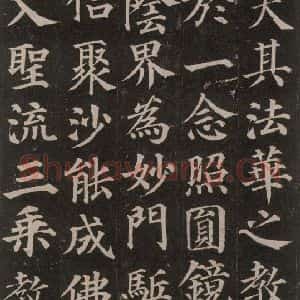 夫其法華之教
於一念照圓鏡
陰界為妙門駈
信聚沙能成佛
入聖流三乘教